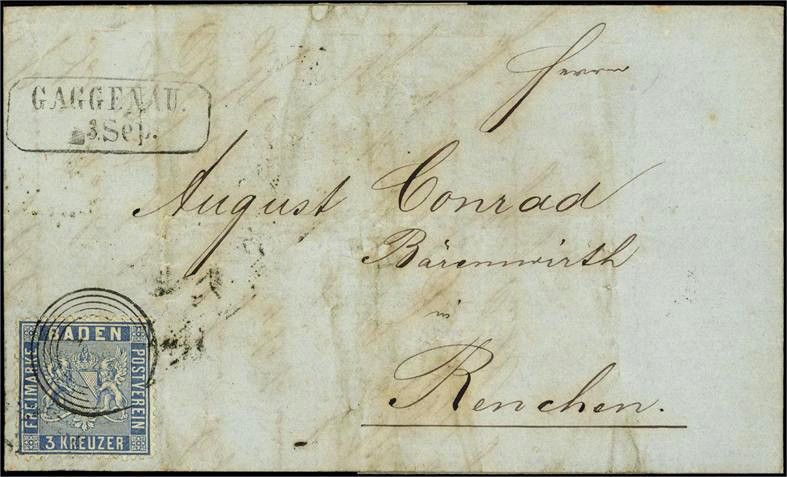 GAGGENAU.
3 Sep.
Herrn
August Conrad
Bärenwirth
in
Renchen.
BADEN
FREIMARKE
POSTVEREIN
3 KREUZER